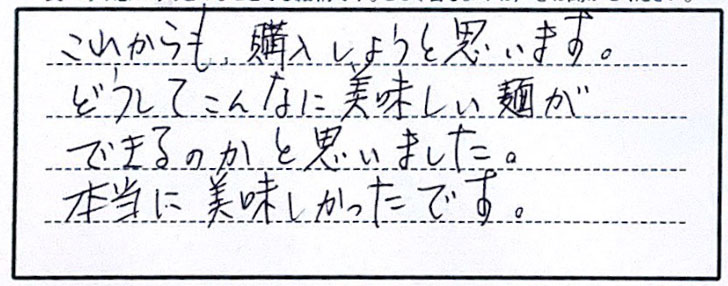 これからも、購入しようと思います。
どうしてこんなに美味しい麺が
できるのかと思いました。
本当に美味しかったです。